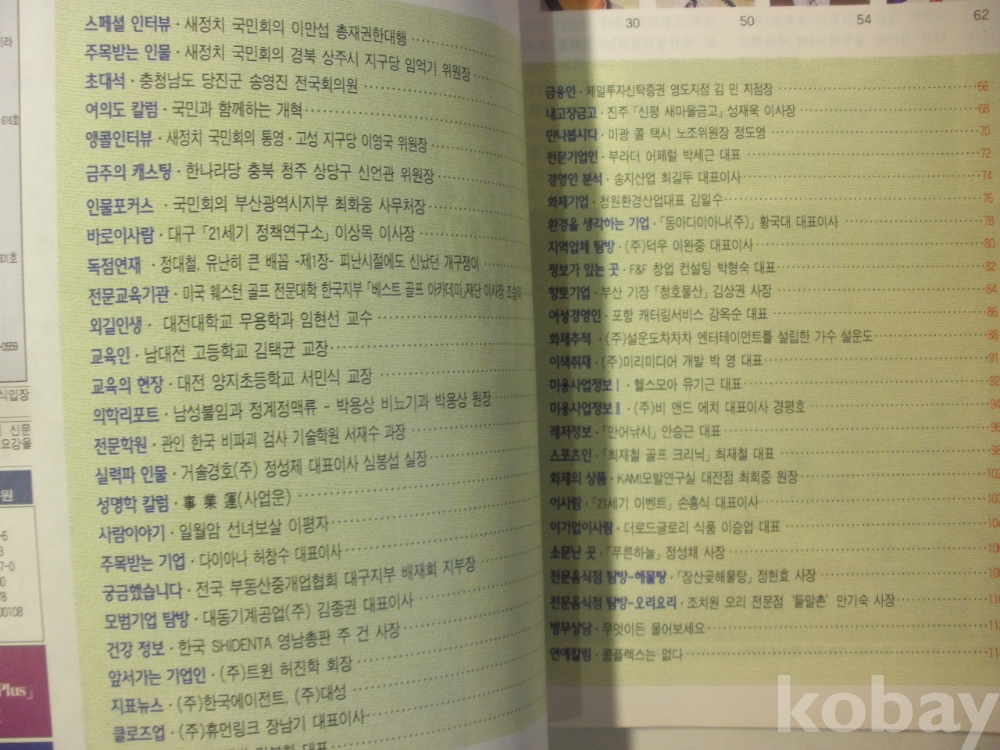 스페셜 인터뷰 · 새정치 국민회의 이만섭 총재권한대행
주목받는 인물 · 새정치 국민회의 경북 상주시 지구당 임억기 위원장
초대석 · 충청남도 당진군 송영진 전국회의원
여의도 칼럼 · 국민과 함께하는 개혁
앵콜인터뷰 · 새정치 국민회의 통영 · 고성 지구당 이영국 위원장
금주의 캐스팅 · 한나라당 충북 청주 상당구 신언관 위원장
인물포커스 · 국민회의 부산광역시지부 최화웅 사무처장
바로이사람 · 대구 「21세기 정책연구소」 이상목 이사장
독점연재 · 정대철, 유난히 큰 배꼽 -제1장- 피난시절에도 신났던 개구쟁이
전문교육기관 · 미국 웨스턴 골프 전문대학 한국지부 「베스트 골프 아카데미」재단 이사장
외길인생 · 대전대학교 무용학과 임현선 교수
교육인 · 남대전 고등학교 김택균 교장
교육의 현장 · 대전 양지초등학교 서민식 교장
의학리포트 · 남성불임과 정계정맥류 - 박용상 비뇨기과 박용상 원장
전문학원 · 관인 한국 비파괴 검사 기술학원 서재수 과장
실력파 인물 · 거솔경호(주) 정성제 대표이사 심봉섭 실장
성명학 칼럼 · 事業運(사업운)
사람이야기 · 일월암 선녀보살 이평자
주목받는 기업 · 다이아나 허창수 대표이사
궁금했습니다 · 전국 부동산중개업협회 대구지부 배재회 지부장
모범기업 탐방 · 대동기계공업(주) 김종권 대표이사
건강 정보 · 한국 SHIDENTA 영남총판 주 건 사장
앞서가는 기업인 · (주)트윈 허진학 회장
지표뉴스 · (주)한국에이전트, (주)대성
클로즈업 · (주)휴먼링크 장남기 대표이사
30 50 54 62
금융인 · 제일투자신탁증권 영도지점 김 민 지점장 66
내고장금고 · 진주 「신평 새마을금고」 성재욱 이사장 68
만나봅시다 · 미광 콜 택시 노조위원장 정도영 70
전문기업인 · 부라더 어페럴 박세근 대표 72
경영인 분석 · 송지산업 최길두 대표이사 74
화제기업 · 청원환경산업대표 김일수 76
환경을 생각하는 기업 · 「동아다이아나(주)」 황국대 대표이사 78
지역업체 탐방 · (주)덕우 이완중 대표이사 80
정보가 있는 곳 · F&F 창업 컨설팅 박형숙 대표 82
향토기업 · 부산 기장 「청호물산」 김상권 사장 84
여성경영인 · 포항 캐터링서비스 감옥순 대표 86
화제추적 · (주)설운도차차차 엔터테이먼트를 설립한 가수 설운도 88
이색취재 · (주)미리미디어 개발 박 영 대표 91
미용사업정보Ⅰ · 헬스모아 유기근 대표 92
미용사업정보Ⅱ · (주)비 앤드 에치 대표이사 경평호
레저정보 · 「만어낚시」 안승근 대표
스포츠인 · 「최재철 골프 크리닉」 최재철 대표
화제의 상품 · KAMI모발연구실 대전점 최희중 원장
이사람 · 「21세기 이벤트」 손홍식 대표이사
이기업이사람 · 더로드글로리 식품 이승업 대표
소문난 곳 · 「푸른하늘」 정성채 사장
전문음식점 탐방-해물탕 · 「장산곶해물탕」 정현호 사장
전문음식점 탐방-오리요리 · 조치원 오리 전문점 '들말촌' 안기숙 사장
병무상담 · 무엇이든 물어보세요
연예칼럼 · 콤플렉스는 없다
kobay